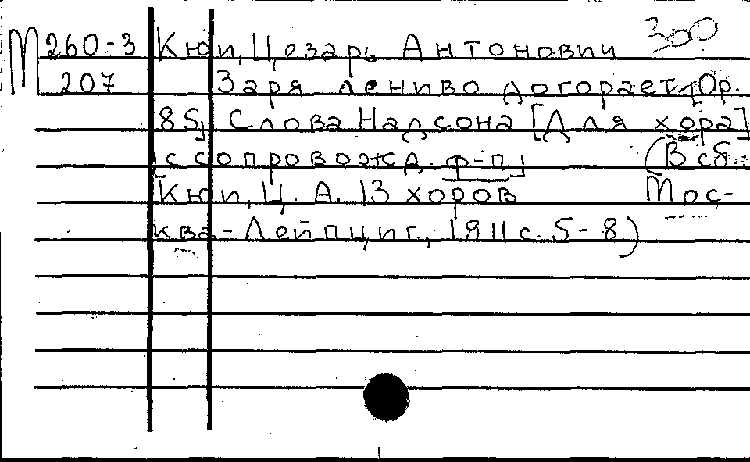 М 260-3 Кюи, Цезарь Антонович 300
207 Заря лениво догорает. [Ор.
85] Слова Надсона [Для хора]
[с сопровожд. ф-п.] (В сб.:
Кюи, Ц. А. 13 хоров Мос-
ква-Лейпциг, 1911 с. 5-8)